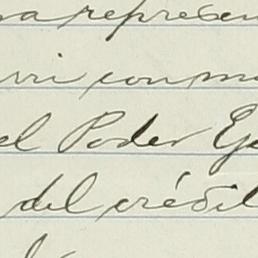 na represen
rri con mo
el Poder Eje
del crédit